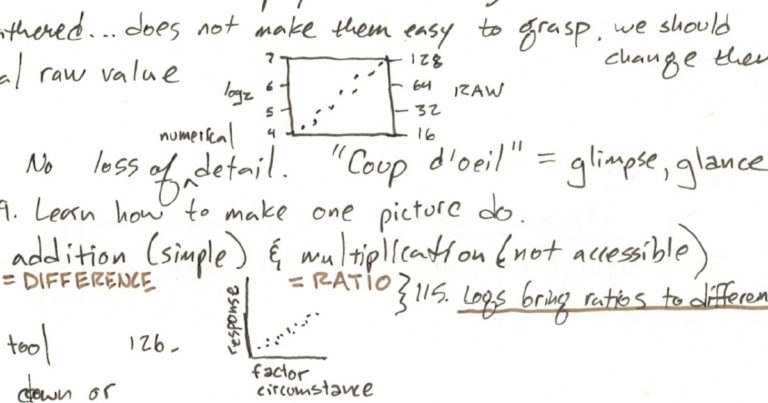 thered... does not make them easy to grasp, we should
change them
al raw value
log2 7 6 5 4
128 64 32 16 RAW
numerical
No loss of ^ detail. "Coup d'oeil" = glimpse, glance
9. Learn how to make one picture do.
addition (simple) & multiplication (not accessible)
= DIFFERENCE = RATIO } 115. Logs bring ratios to differen
tool 126.
response
factor
circumstance
down or